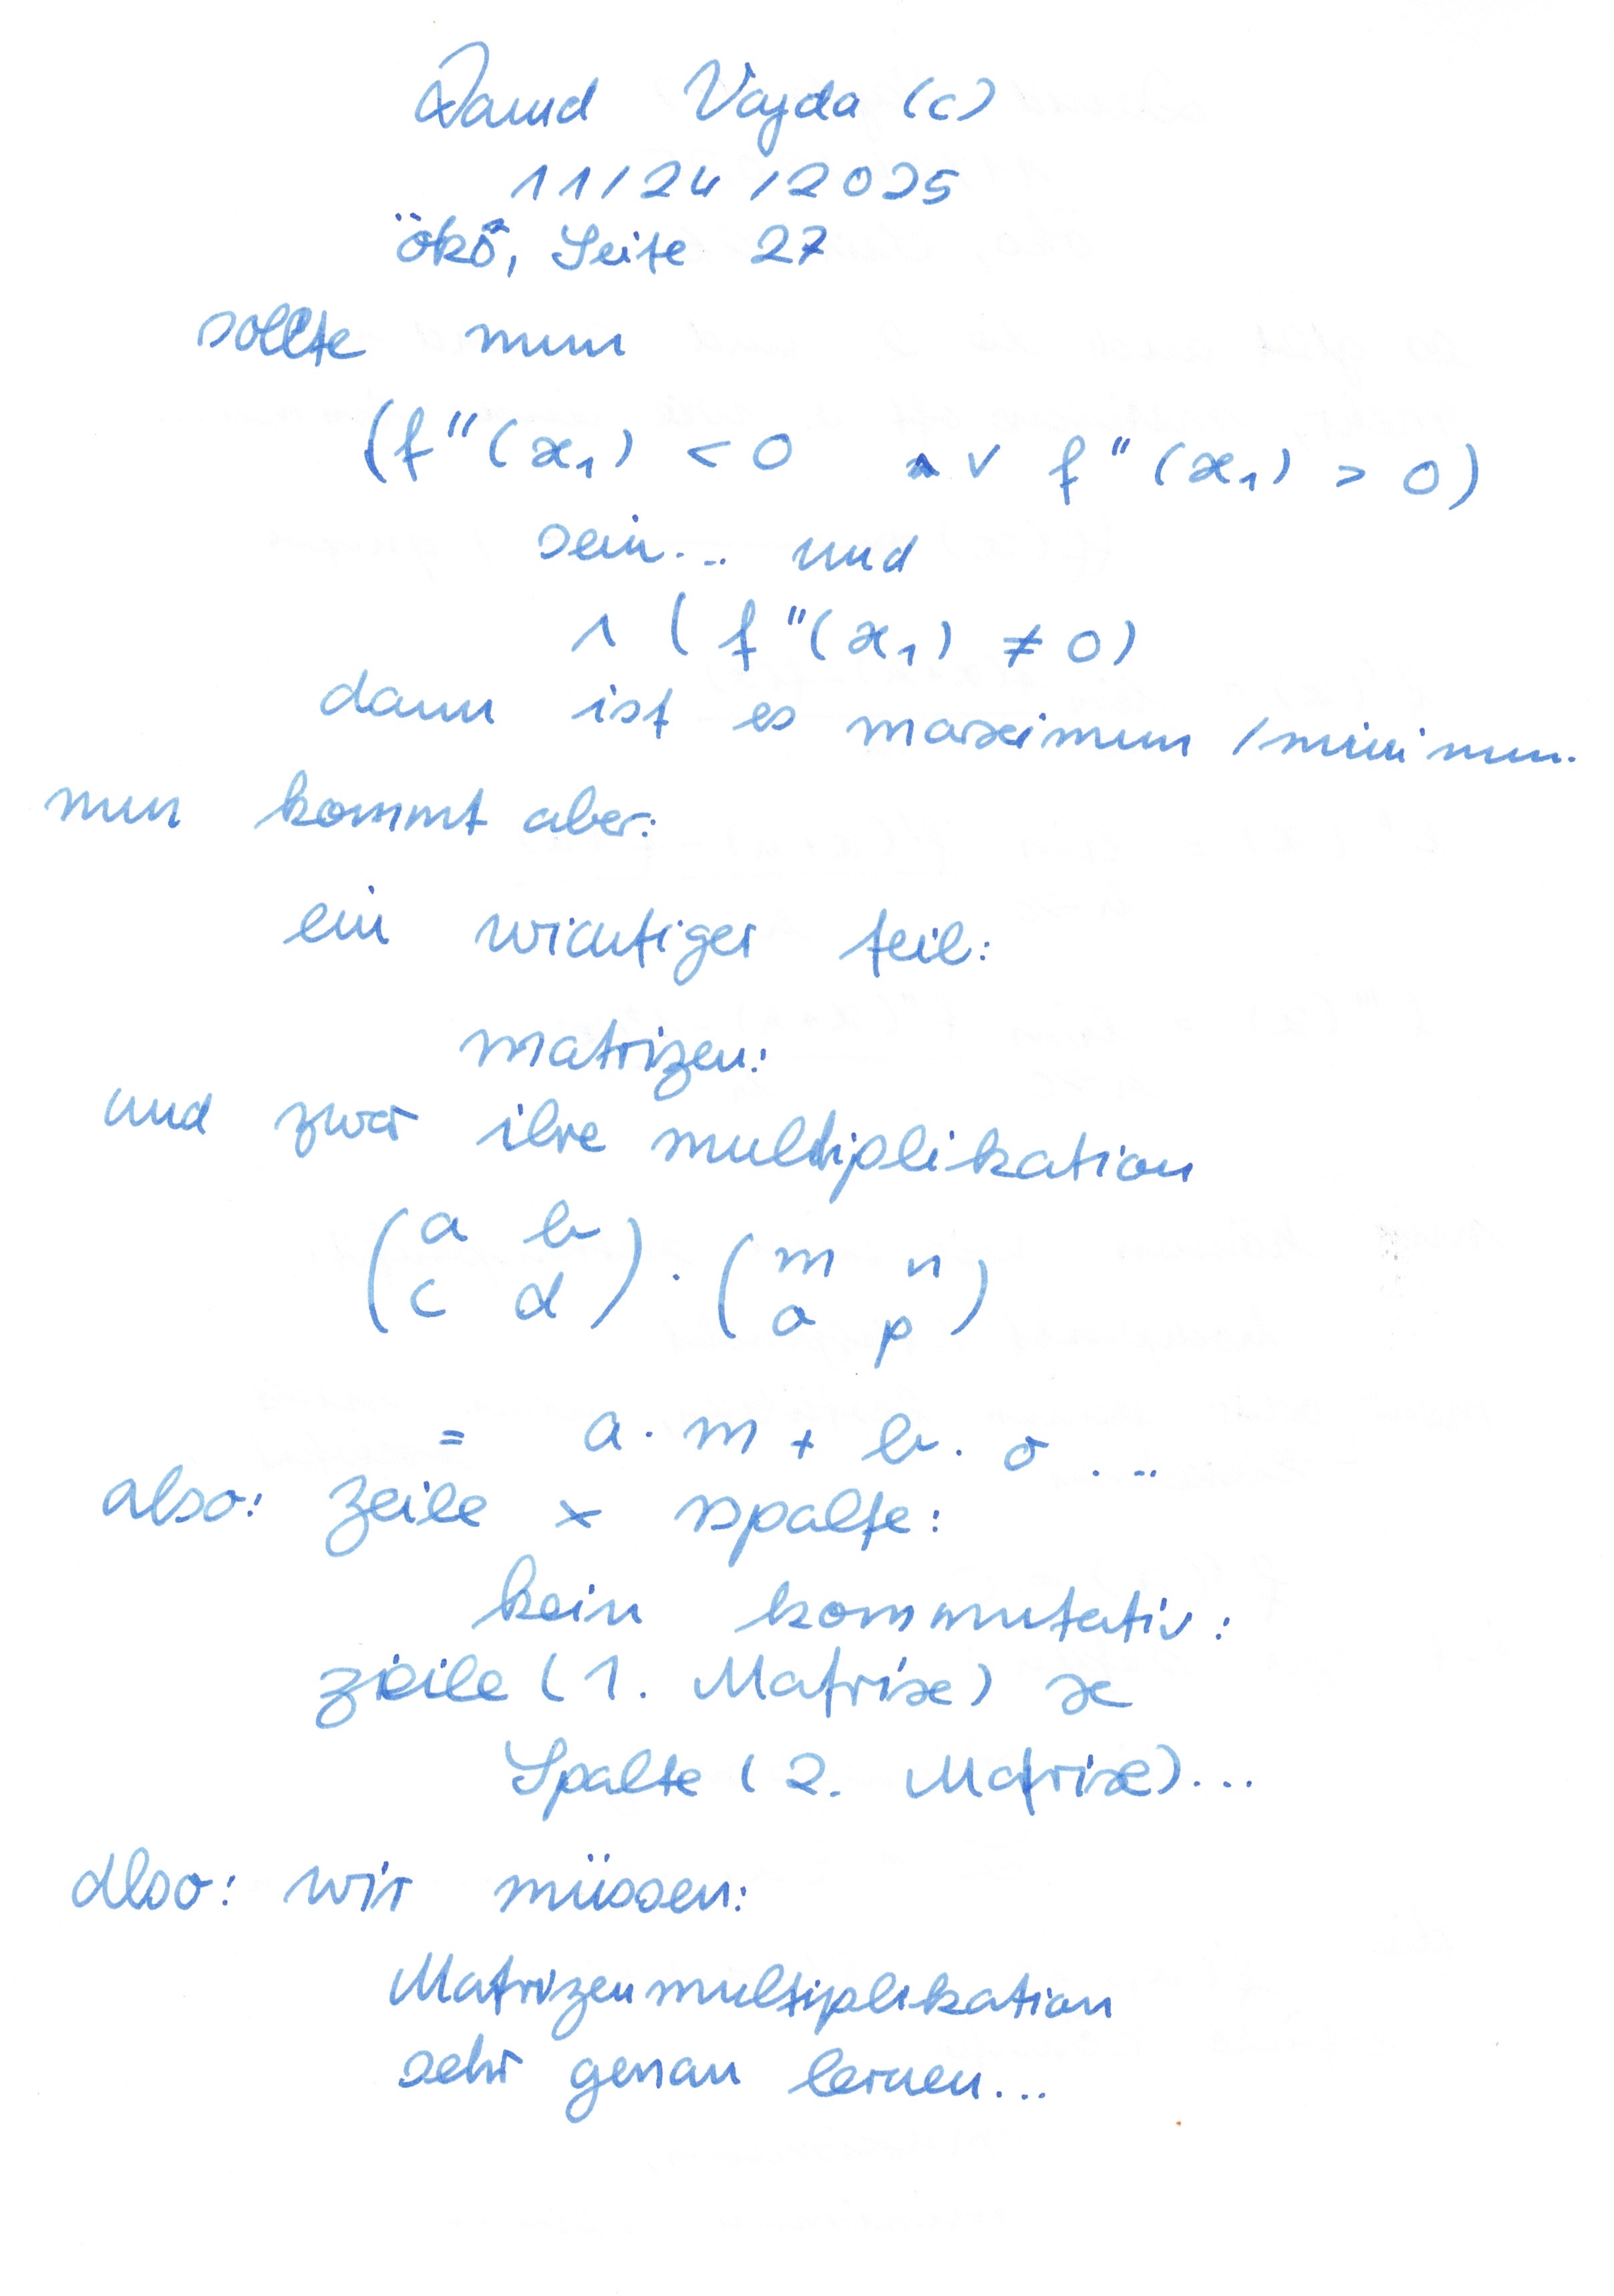 David Vajda (c)
11/24/2025
ökö, Seite 27
sollte nun
(f''(x₁) < 0 ∧ ∨ f''(x₁) > 0)
sein... und
∧ (f''(x₁) ≠ 0)
dann ist es maximum / minimum.
nun kommt aber:
ein wichtiger teil:
matrizen:
und zwar ihre multiplikation
(a b) · (m n)
(c d) (o p)
= a · m + b · o ...
also: zeile × spalte:
kein kommutativ:
zeile (1. Matrix) x
Spalte (2. Matrix)...
also: wir müssen:
Matrizenmultiplikation
sehr genau lernen...